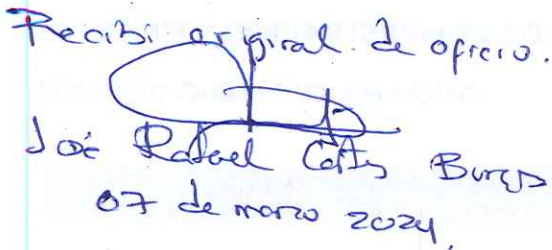 Recibí original de oficio.
José Rafael Cortés Burgos
07 de marzo 2024.